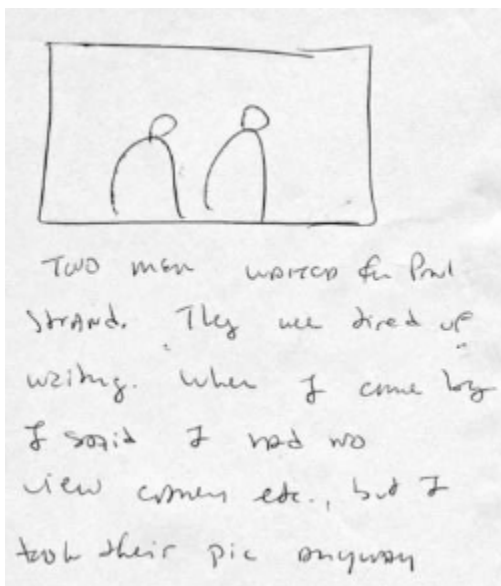 TWO men WAITED for Paul
STRAND. They were tired of
waiting. When I came by
I said I had no
view camera etc., but I
took their pic anyway